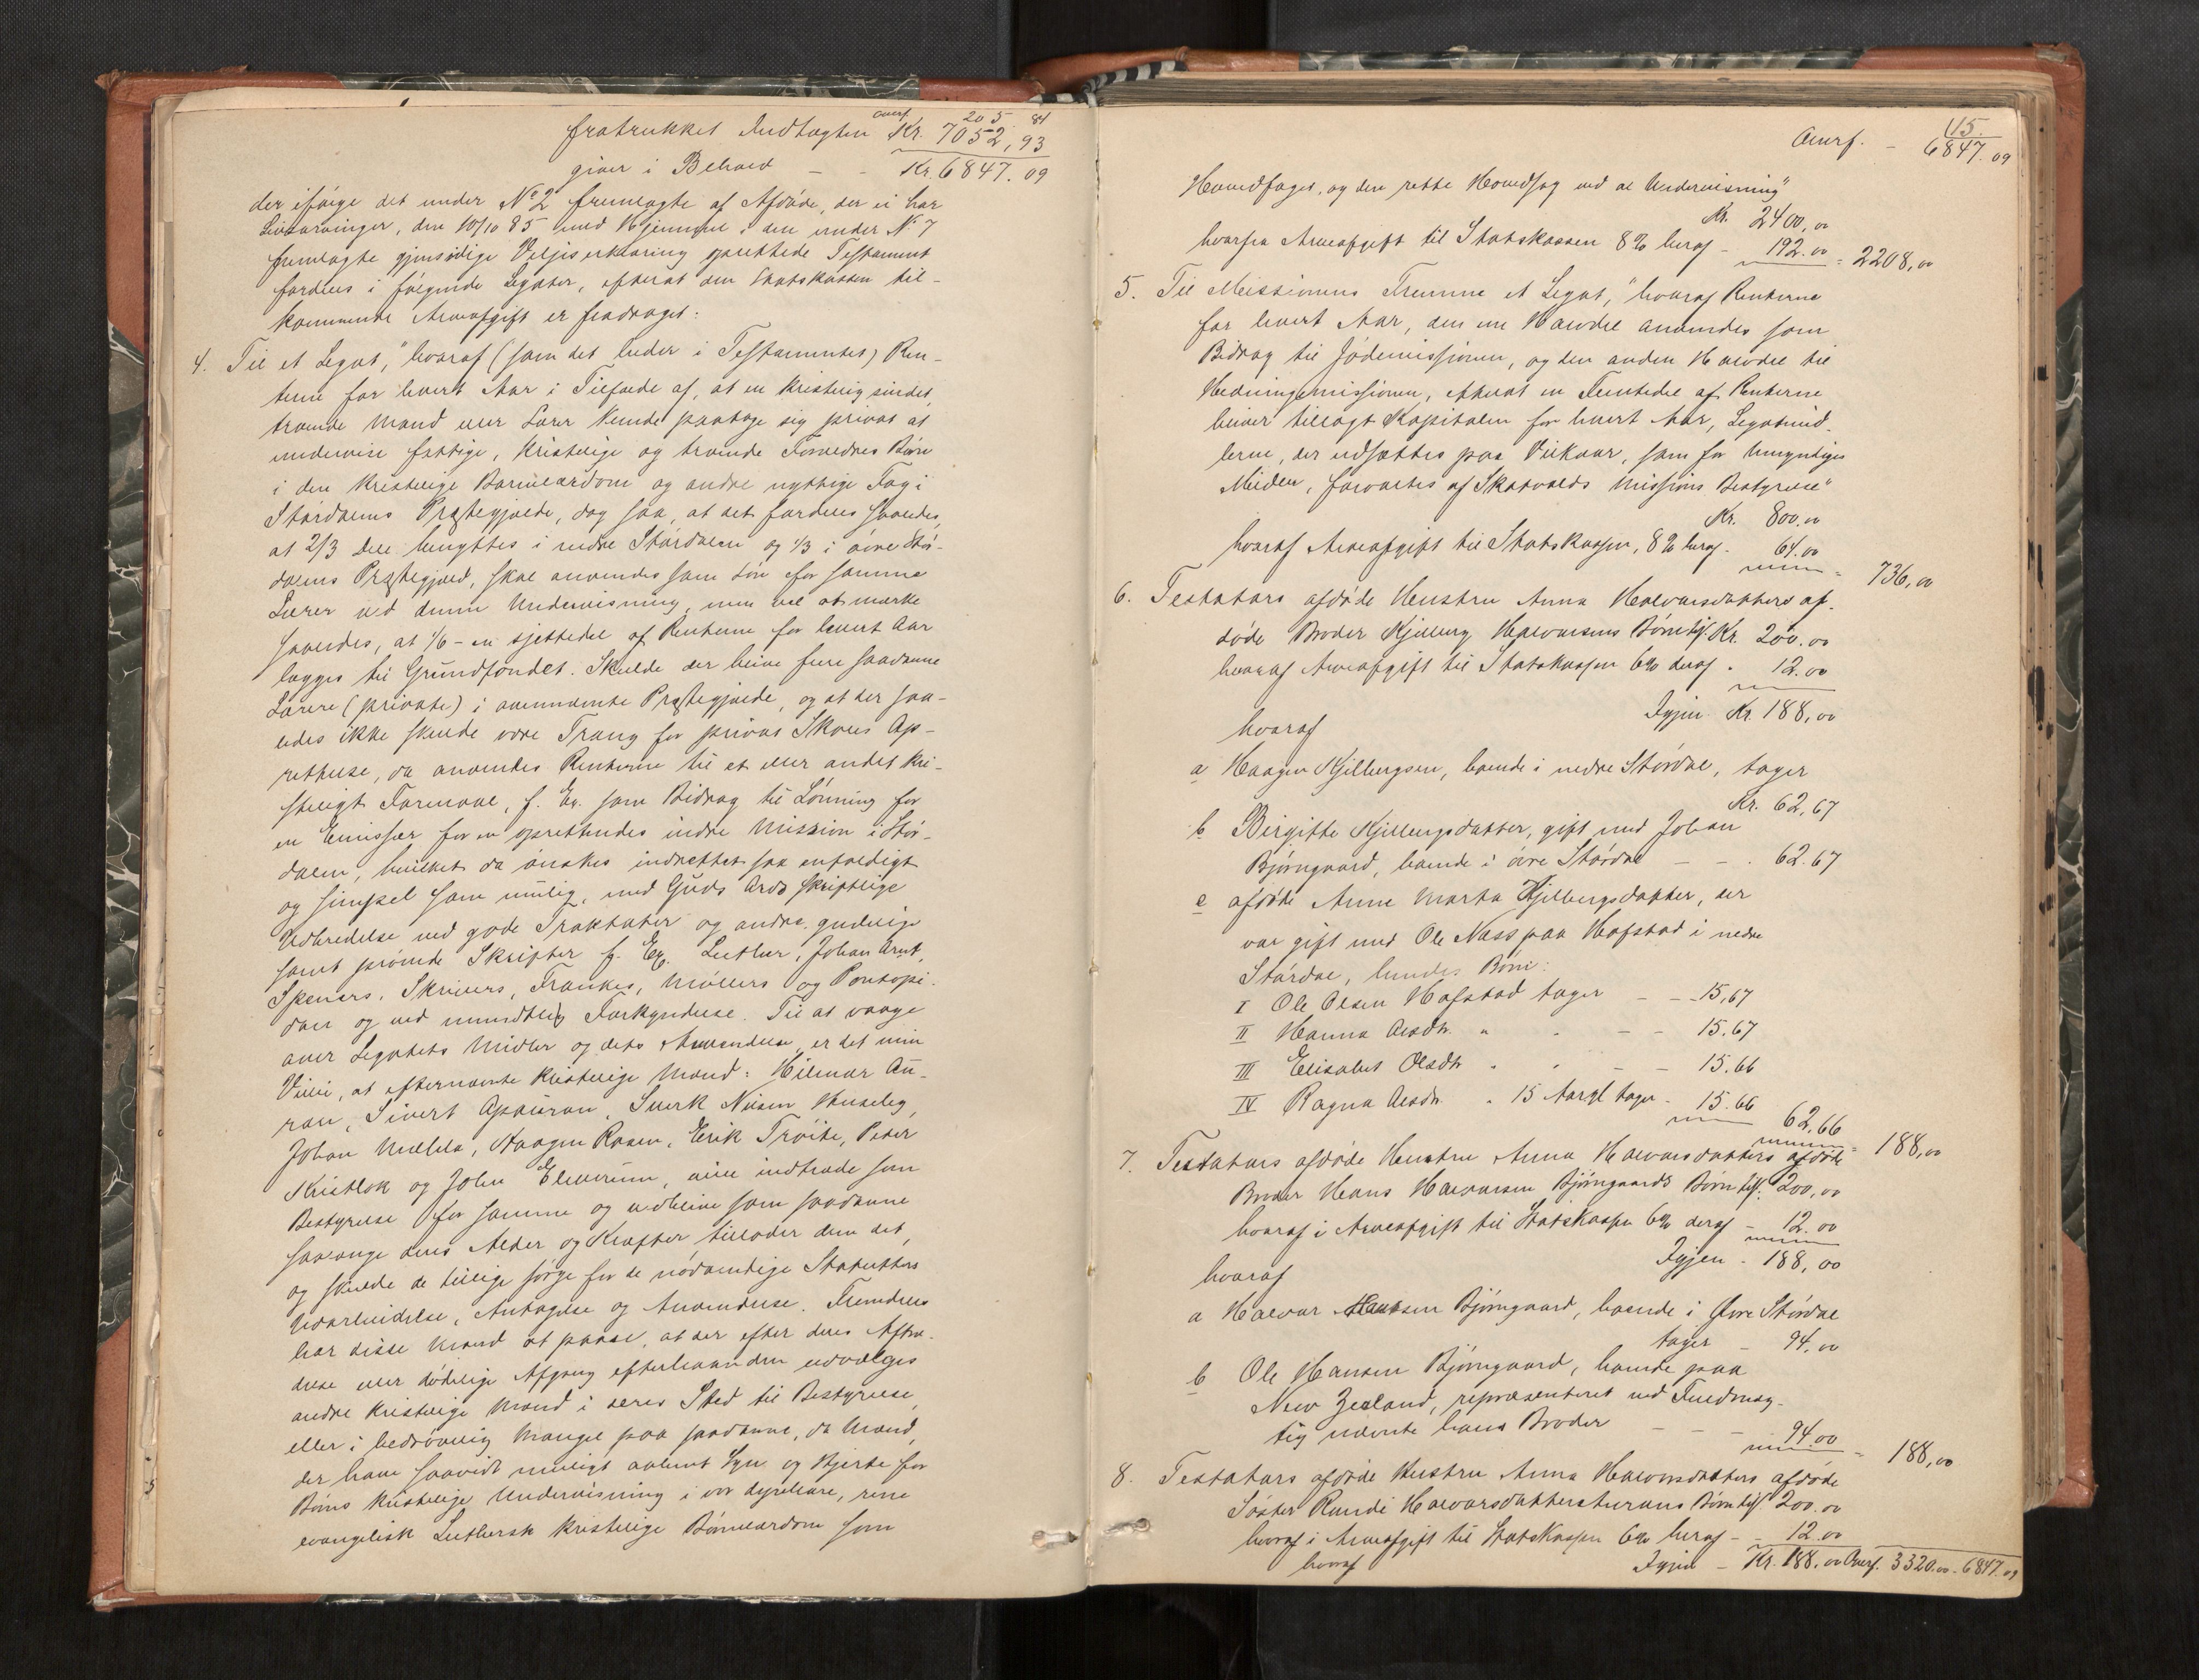 Overf. 205 84
fratrukket Indtægten Kr. 7052,93
giver i Behold - - Kr. 6847.09
der ifølge det under No 2 fremlagte af Afdøde, der ei har
Livsarvinger, den 10/10 85 med Hjemmel i den under No 7
fremlagte gjensidige Viljeserklæring oprettede Testament
fordeles i følgende Legater, efterat den Statskassen til-
kommende Arveafgift er fradraget:
4. Til et Legat, "hvoraf (som det lyder i Testamentet) Ren-
terne for hvert Aar i Tilfælde af, at en kristelig sindet,
troende Mand eller Lærer kunde paatage sig privat at
undervise fattige, kristelige og troende Forældres Børn
i den kristelige Børnelærdom og andre nyttige Fag i
Størdalens Præstegjæld, dog saa, at det fordeles saaledes,
at 2/3 Dele benyttes i nedre Størdalen og 1/3 i øvre Stør-
dalens Præstegjæld, skal anvendes som Løn for samme
Lærer ved denne Undervisning, men vel at mærke
saaledes, at 1/6 - en sjettedel af Renterne for hvert Aar
lægges til Grundfondet. Skulde der blive flere saadanne
Lærere (private) i ovennævnte Præstegjælde, og at der saa-
ledes ikke skulde være Trang for privat Skoles Op-
rettelse, da anvendes Renterne til et eller andet kri-
steligt Formaal, f. Ex. som Bidrag til Lønning for
en Emissær for en oprettendes indre Mission i Stør-
dalen, hvilket da ønskes indrettet saa enfoldigt
og simpel som mulig, med Guds Ords skriftlige
Udbredelse ved gode Traktater og andre gudelige
samt prøvede Skrifter f. Ex. Luther, Johan Arnt,
Speners, Skrivers, Frankes, Møllers og Pontopi-
dan og ved mundtlig Forkyndelse. Til at vaage
over Legatets Midler og dets Anvendelse er det min
Villie, at efternævnte kristelige Mænd: Hilmar Au-
ran, Sivert Opauran, Sverk Nilsen Husebey,
Johan Mæhla, Haagen Rosen, Erik Trøite, Peter
Kristlok og John Elverum, ville indtræde som
Bestyrelse for samme og udblive som saadanne
saalænge deres Alder og Kræfter tillader dem det,
og skulde de tillige sørge for de nødvendige Statutters
Udarbeidelse, Antagelse og Anvendelse. Fremdeles
har disse Mænd at paase, at der efter deres Aftræ-
delse eller dødelige Afgang efterhaanden udvælges
andre kristelige Mænd i deres Sted til Bestyrelse,
eller i bedrøvelig Mangel paa saadanne, da Mænd,
der have saavidt muligt aabent Syn og Hjerte for
Børns kristelige Undervisning i vor dyrebare, rene
evangelisk Luthersk kristelige Børnelærdom som
15.
Overf. - 6847.09
Hovedfaget, og den rette Hovedsag ved al Undervisning"
Kr. 2400,00
hvorfra Arveafgift til Statskassen 8% heraf - 192.00 = 2208,00
5. Til Missionens Fremme et Legat, "hvoraf Renterne
for hvert Aar, den ene Halvdel anvendes som
Bidrag til Jødemissionen, og den anden Halvdel til
Hedningemissionen, efterat en Femtedel af Renterne
bliver tillagt Kapitalen for hvert Aar, Legatmid-
lerne, der udsættes paa Vilkaar, som for Umyndiges
Midler, forvaltes af Skatvolds Missions Bestyrelse"
Kr. 800.00
hvoraf Arveafgift til Statskassen, 8% heraf - 64.00 = 736,00
6. Testators afdøde Hustru Anna Halvorsdatters af-
døde Broder Kjilberg Halvorsens Børn tilf. Kr. 200.00
hvoraf Arveafgift til Statskassen 6% deraf - 12.00
Igjen Kr. 188,00
hvoraf
a Haagen Kjilbergsen, boende i nedre Størdal, tager
Kr. 62,67
b Birgitte Kjilbergsdatter, gift med Johan
Bjørngaard, boende i øvre Størdal - - 62.67
c afdøde Anne Marta Kjilbergsdatter, der
var gift med Ole Næss paa Hofstad i nedre
Størdal, hendes Børn:
I Ole Olsen Hofstad tager - - 15,67
II Hanna Olsdtr. " - - - 15.67
III Elisabet Olsdtr " - - 15.66
IV Ragna Olsdtr. " 15 Aargl tager - 15.66 62,66
= 188,00
7. Testators afdøde Hustru Anna Halvorsdatters afdøde
Broder Hans Halvorsen Bjørngaards Børn tilf. 200,00
hvoraf i Arveafgift til Statskassen 6% deraf - 12.00
Igjen - 188,00
hvoraf
a Halvor Hansen Bjørngaard, boende i Øvre Størdal
tager - 94,00
b Ole Hansen Bjørngaard, boende paa
New Zealand, repræsenteret ved Fuldmæg-
tig nævnte hans Broder - - - 94.00 = 188,00
8. Testators afdøde Hustru Anna Halvorsdatters afdøde
Søster Randi Halvorsdatter Aurans Børn tilf. 200.00
hvoraf i Arveafgift til Statskassen 6% heraf - - 12.00
hvoraf Igjen - Kr. 188.00 Overf. 3320.00 - 6847.09